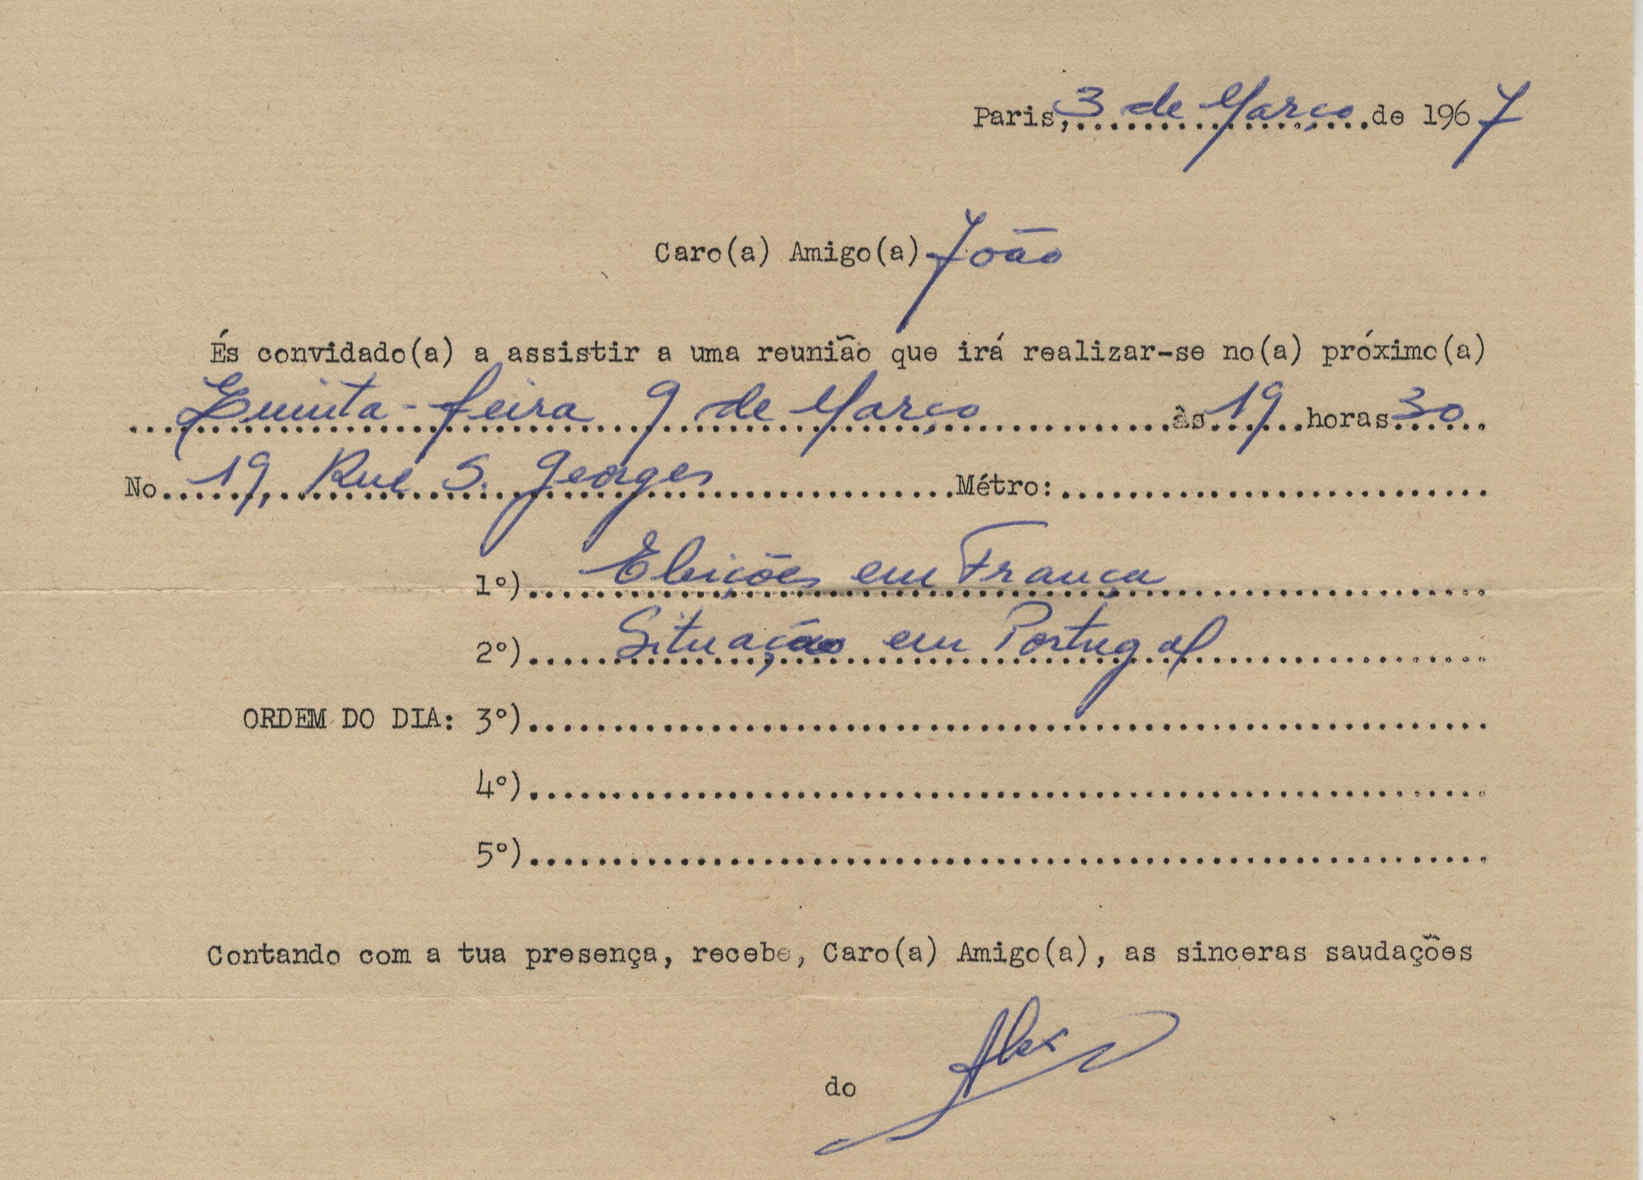 Paris, 3 de Março de 1967
Caro(a) Amigo(a) João
És convidado(a) a assistir a uma reunião que irá realizar-se no(a) próximo(a)
Quinta-feira 9 de Março às 19 horas 30
No 19, Rue S. Georges Métro:
1º) Eleições em França
2º) Situação em Portugal
ORDEM DO DIA: 3º)
4º)
5º)
Contando com a tua presença, recebe, Caro(a) Amigo(a), as sinceras saudações
do Alex